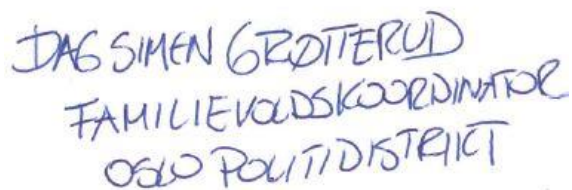 DAG SIMEN GRØTTERUD
FAMILIEVOLDSKOORDINATOR
OSLO POLITIDISTRIKT